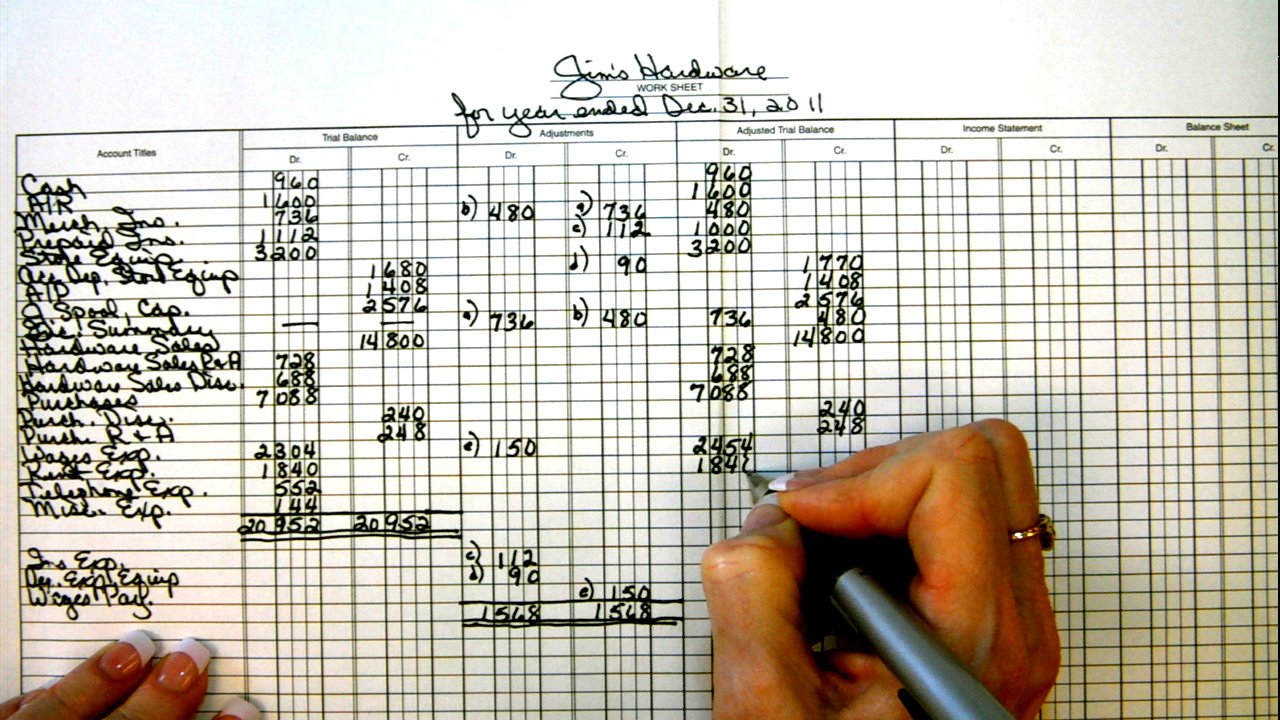 Jim's Hardware
WORK SHEET
for year ended Dec. 31, 2011
Account Titles Trial Balance Adjustments Adjusted Trial Balance Income Statement Balance Sheet
Dr. Cr. Dr. Cr. Dr. Cr. Dr. Cr. Dr. Cr.
Cash 960 960
A/R 1600 1600
Merch. Ins. 736 b) 480 a) 736 480
Prepaid Ins. 1112 c) 112 1000
Store Equip. 3200 3200
Acc. Dep. Store Equip 1680 d) 90 1770
A/P 1408 1408
O. Spool, Cap. 2576 2576
Summary — — a) 736 b) 480 736 480
Hardware Sales 14800 14800
Hardware Sales R&A 728 728
Hardware Sales Disc. 688 688
Purchases 7088 7088
Purch. Disc. 240 240
Purch. R&A 248 248
Wages Exp. 2304 e) 150 2454
Rent Exp. 1840 184
Telephone Exp. 552
Misc. Exp. 144
20952 20952
Ins Exp. c) 112
Dep. Exp. Equip d) 90
Wages Pay. e) 150
1568 1568